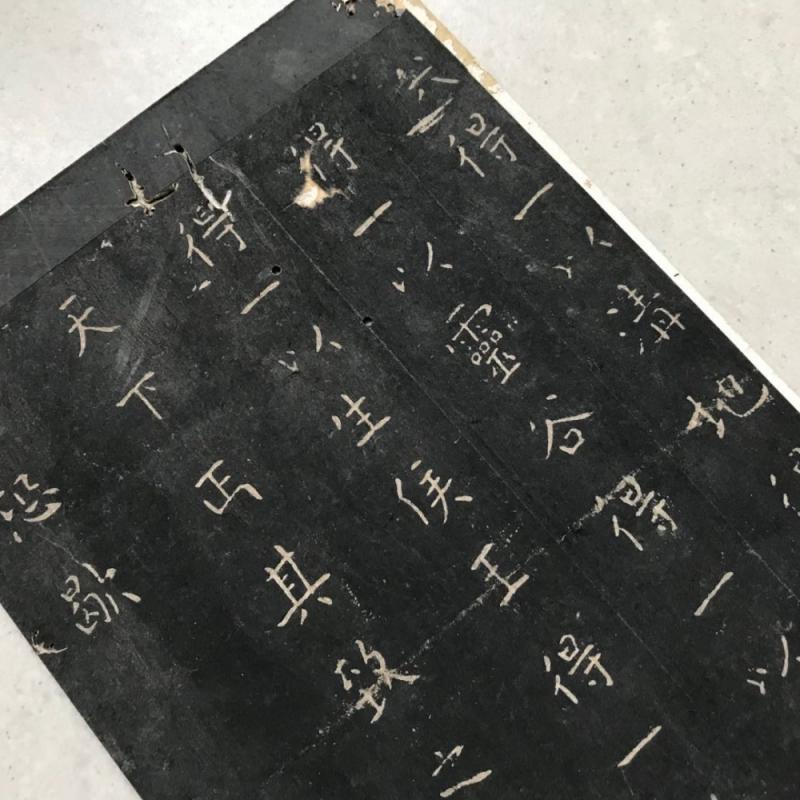 天得一以清地得
得一以靈谷得一以
得一以生侯王得一
天下正其致之
恐歇